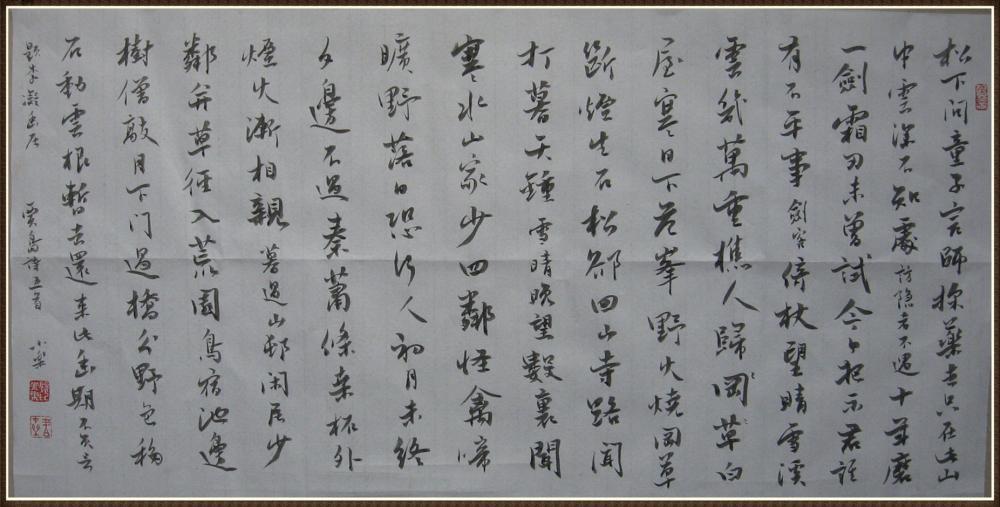 松下问童子言師採藥去只在此山
中雲深不知處訪隐者不遇十年磨
一劍霜刃未曾試今日把示君誰
有不平事劍客倚杖望晴雪溪
雲幾萬重樵人歸岡草白
屋寒日下危峯野火燒岡草
斷煙生石松却回山寺路闻
打暮天鍾雪晴晚望數裏聞
寒水山家少四鄰怪禽啼
曠野落日恐行人初月未終
夕邊不過秦蕭條桑柘外
煙火漸相親暮過山邨闲居少
鄰并草徑入荒園鳥宿池邊
樹僧敲月下门過橋分野色移
石動雲根暫去還来此幽期不負言
題李凝幽居 賈島诗五首 小樂